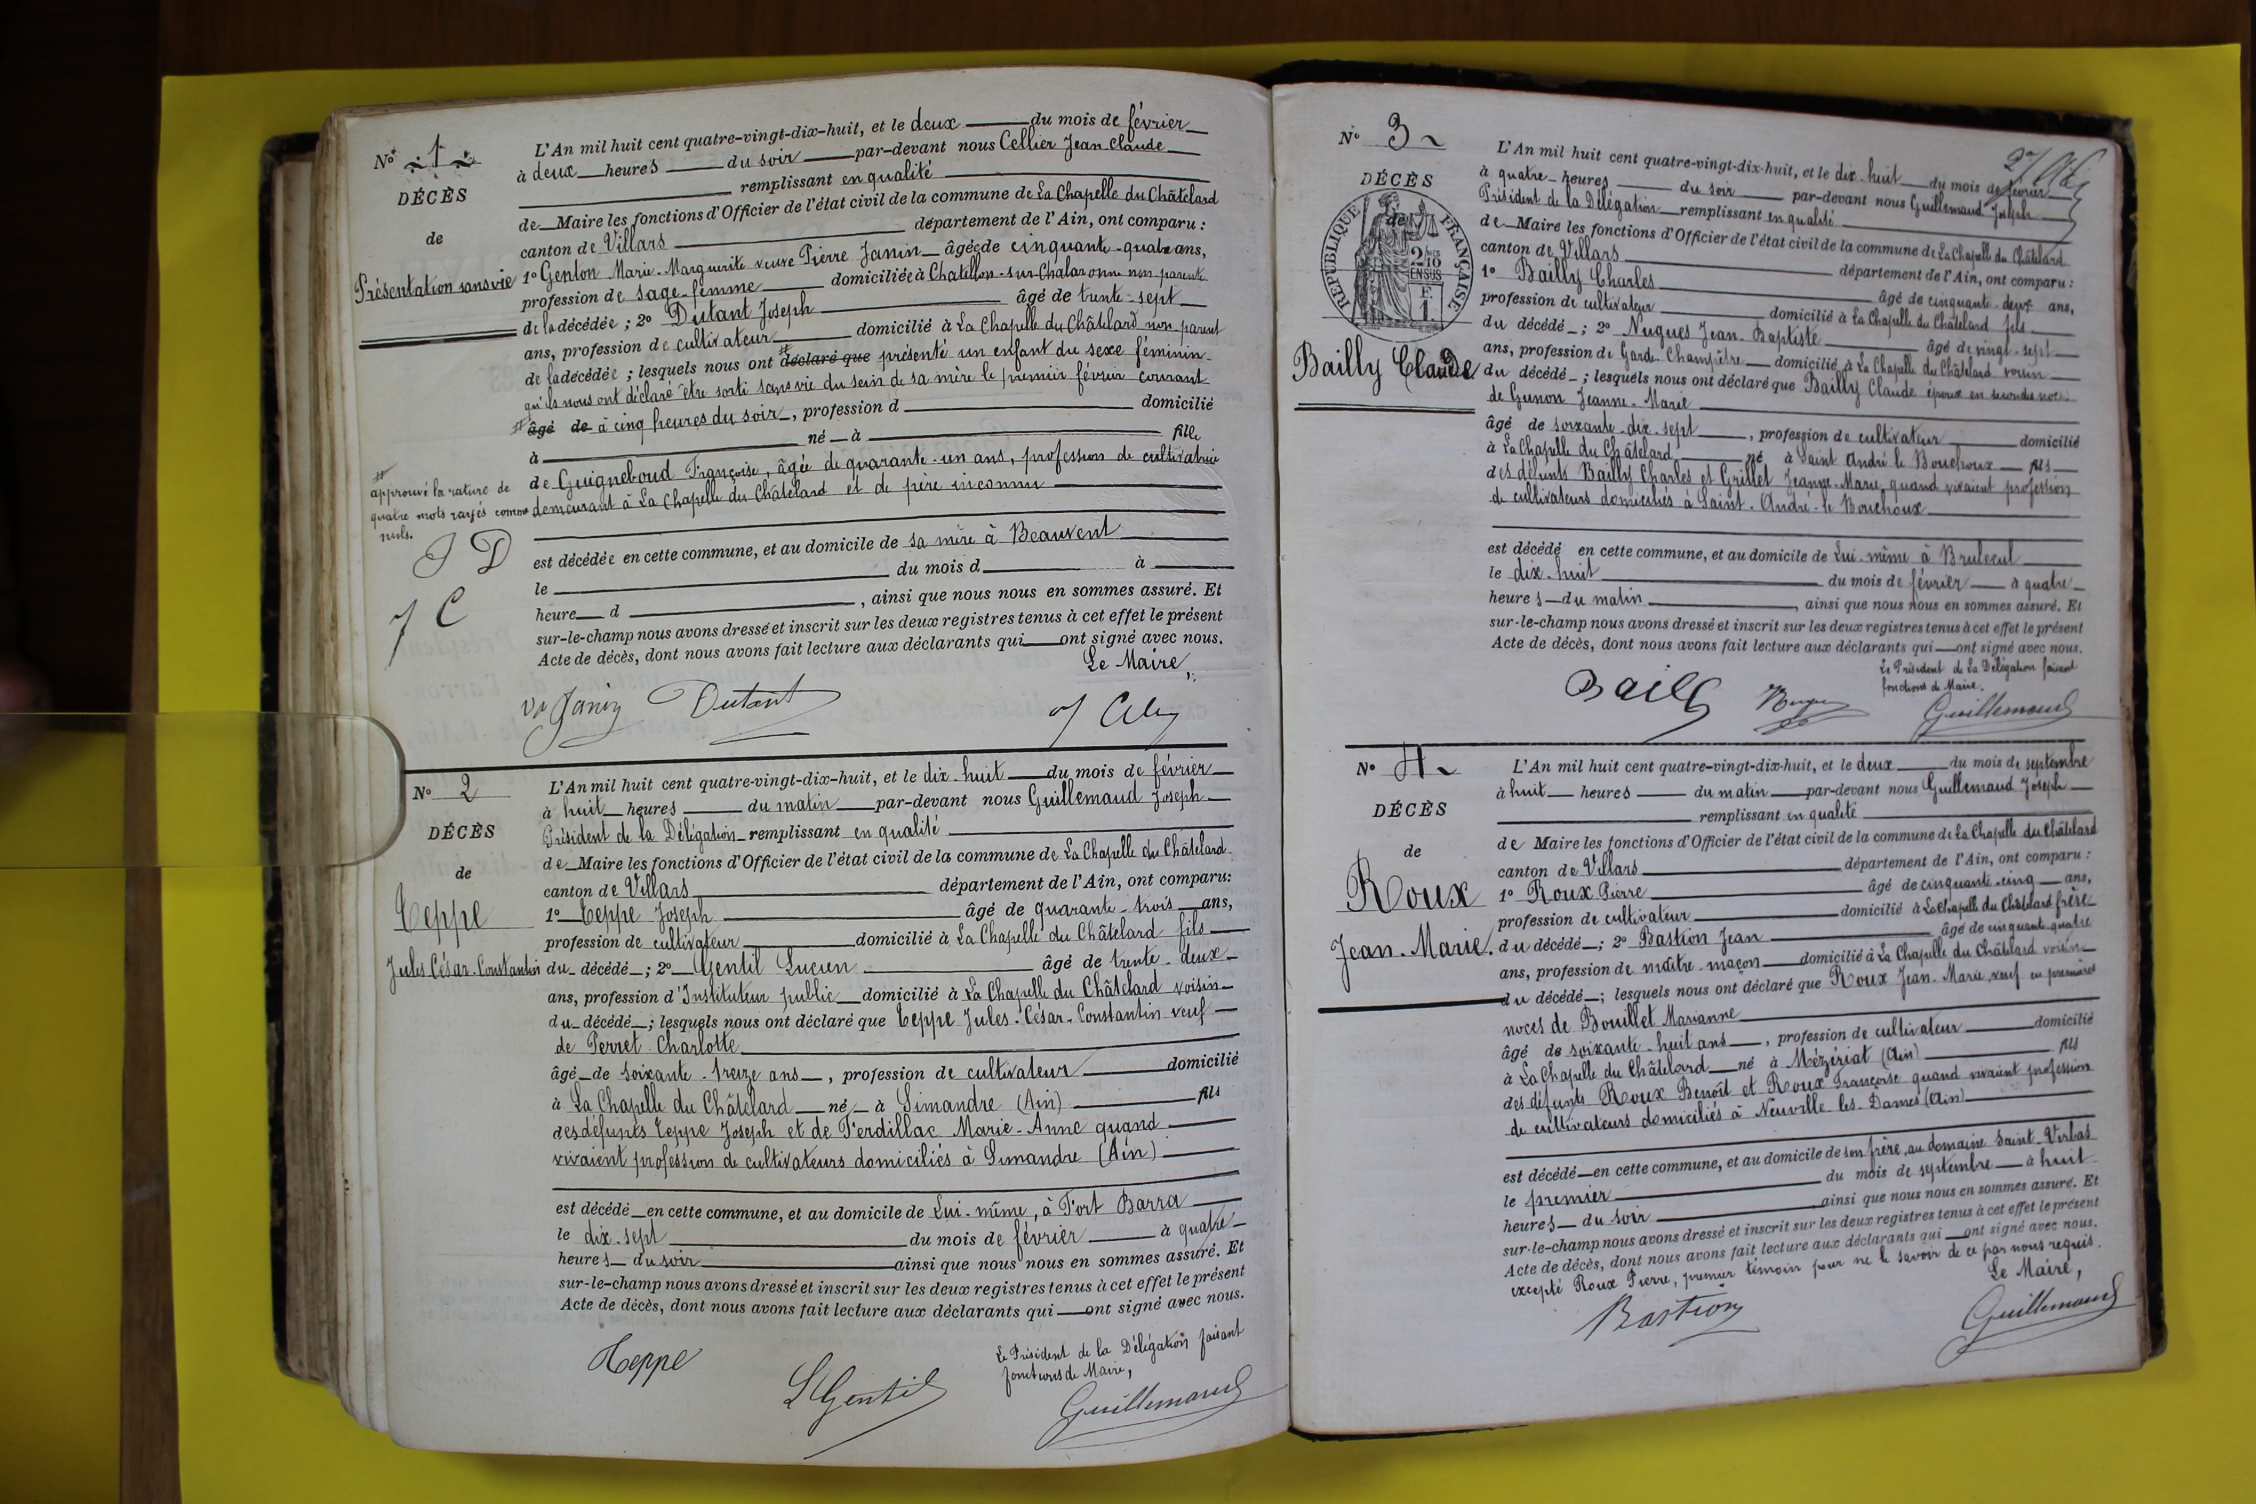 Nº 1
DÉCÈS
de
Présentation sans vie
L'An mil huit cent quatre-vingt-dix-huit, et le deux du mois de février
à deux heures du soir par-devant nous Cellier Jean Claude
remplissant en qualité
de Maire les fonctions d'Officier de l'état civil de la commune de La Chapelle du Châtelard
canton de Villars département de l'Ain, ont comparu :
1º Genton Marie-Marguerite veuve Pierre Janin âgée de cinquante-quatre ans,
profession de sage-femme domiciliée à Chatillon-sur-Chalaronne non parente
de la décédée ; 2º Dutant Joseph âgé de trente-sept
ans, profession de cultivateur domicilié à La Chapelle du Châtelard non parent
de la décédée ; lesquels nous ont déclaré que présenté un enfant du sexe féminin
qu'ils nous ont déclaré être sorti sans vie du sein de sa mère le premier février courant
âgé de à cinq heures du soir, profession d domicilié
à né à fille
de Guigneboud Françoise, âgée de quarante-un ans, profession de cultivatrice
demeurant à La Chapelle du Châtelard et de père inconnu
approuvé la rature de
quatre mots rayés comme
nuls.
J D
J C
est décédée en cette commune, et au domicile de sa mère à Beauvent
le du mois d à
heure d , ainsi que nous nous en sommes assuré. Et
sur-le-champ nous avons dressé et inscrit sur les deux registres tenus à cet effet le présent
Acte de décès, dont nous avons fait lecture aux déclarants qui ont signé avec nous.
Le Maire,
Janin Dutant
Nº 2
DÉCÈS
de
Teppe
Jules César-Constantin
L'An mil huit cent quatre-vingt-dix-huit, et le dix-huit du mois de février
à huit heures du matin par-devant nous Guillemaud Joseph
Président de la Délégation remplissant en qualité
de Maire les fonctions d'Officier de l'état civil de la commune de La Chapelle du Châtelard
canton de Villars département de l'Ain, ont comparu :
1º Teppe Joseph âgé de quarante-trois ans,
profession de cultivateur domicilié à La Chapelle du Châtelard fils
du décédé ; 2º Gentil Lucien âgé de trente-deux
ans, profession d'Instituteur public domicilié à La Chapelle du Châtelard voisin
du décédé ; lesquels nous ont déclaré que Teppe Jules-César-Constantin veuf
de Perret Charlotte
âgé de soixante-treize ans, profession de cultivateur domicilié
à La Chapelle du Châtelard né à Simandre (Ain) fils
des défunts Teppe Joseph et de Ferdillac Marie-Anne quand
vivaient profession de cultivateurs domiciliés à Simandre (Ain)
est décédé en cette commune, et au domicile de Lui-même, à Fort Barra
le dix-sept du mois de février à quatre
heures du soir ainsi que nous nous en sommes assuré. Et
sur-le-champ nous avons dressé et inscrit sur les deux registres tenus à cet effet le présent
Acte de décès, dont nous avons fait lecture aux déclarants qui ont signé avec nous.
Le Président de la Délégation faisant
fonctions de Maire,
Teppe LGentil Guillemaud
Nº 3
DÉCÈS
de
RÉPUBLIQUE FRANÇAISE
Bailly Claude
L'An mil huit cent quatre-vingt-dix-huit, et le dix-huit du mois de février
à quatre heures du soir par-devant nous Guillemaud Joseph
Président de la Délégation remplissant en qualité
de Maire les fonctions d'Officier de l'état civil de la commune de La Chapelle du Châtelard
canton de Villars département de l'Ain, ont comparu :
1º Bailly Charles âgé de cinquante-deux ans,
profession de cultivateur domicilié à La Chapelle du Châtelard fils
du décédé ; 2º Nugues Jean-Baptiste âgé de vingt-sept
ans, profession de Garde-Champêtre domicilié à La Chapelle du Châtelard voisin
du décédé ; lesquels nous ont déclaré que Bailly Claude époux en secondes noces
de Gunon Jeanne-Marie
âgé de soixante-dix-sept, profession de cultivateur domicilié
à La Chapelle du Châtelard né à Saint André le Bouchoux fils
des défunts Bailly Charles et Grillet Jeanne-Marie, quand vivaient profession
de cultivateurs domiciliés à Saint-André-le Bouchoux
est décédé en cette commune, et au domicile de Lui-même à Brulecul
le dix-huit du mois de février à quatre
heures du matin, ainsi que nous nous en sommes assuré. Et
sur-le-champ nous avons dressé et inscrit sur les deux registres tenus à cet effet le présent
Acte de décès, dont nous avons fait lecture aux déclarants qui ont signé avec nous.
Le Président de La Délégation faisant
fonctions de Maire.
Bailly Guillemaud
Nº 4
DÉCÈS
de
Roux
Jean-Marie.
L'An mil huit cent quatre-vingt-dix-huit, et le deux du mois de septembre
à huit heures du matin par-devant nous Guillemaud Joseph
remplissant en qualité
de Maire les fonctions d'Officier de l'état civil de la commune de La Chapelle du Châtelard
canton de Villars département de l'Ain, ont comparu :
1º Roux Pierre âgé de cinquante-cinq ans,
profession de cultivateur domicilié à La Chapelle du Châtelard frère
du décédé ; 2º Bastion Jean âgé de cinquante-quatre
ans, profession de maître-maçon domicilié à La Chapelle du Châtelard voisin
du décédé ; lesquels nous ont déclaré que Roux Jean-Marie, veuf en premières
noces de Bouillet Marianne
âgé de soixante-huit ans, profession de cultivateur domicilié
à La Chapelle du Châtelard né à Mézériat (Ain) fils
des défunts Roux Benoît et Roux Françoise quand vivaient profession
de cultivateurs domiciliés à Neuville-les-Dames (Ain)
est décédé en cette commune, et au domicile de son frère, au domaine Saint-Verbas
le premier du mois de septembre à huit
heures du soir ainsi que nous nous en sommes assuré. Et
sur-le-champ nous avons dressé et inscrit sur les deux registres tenus à cet effet le présent
Acte de décès, dont nous avons fait lecture aux déclarants qui ont signé avec nous.
excepté Roux Pierre, premier témoin pour ne le savoir de ce par nous requis.
Le Maire,
Bastion Guillemaud